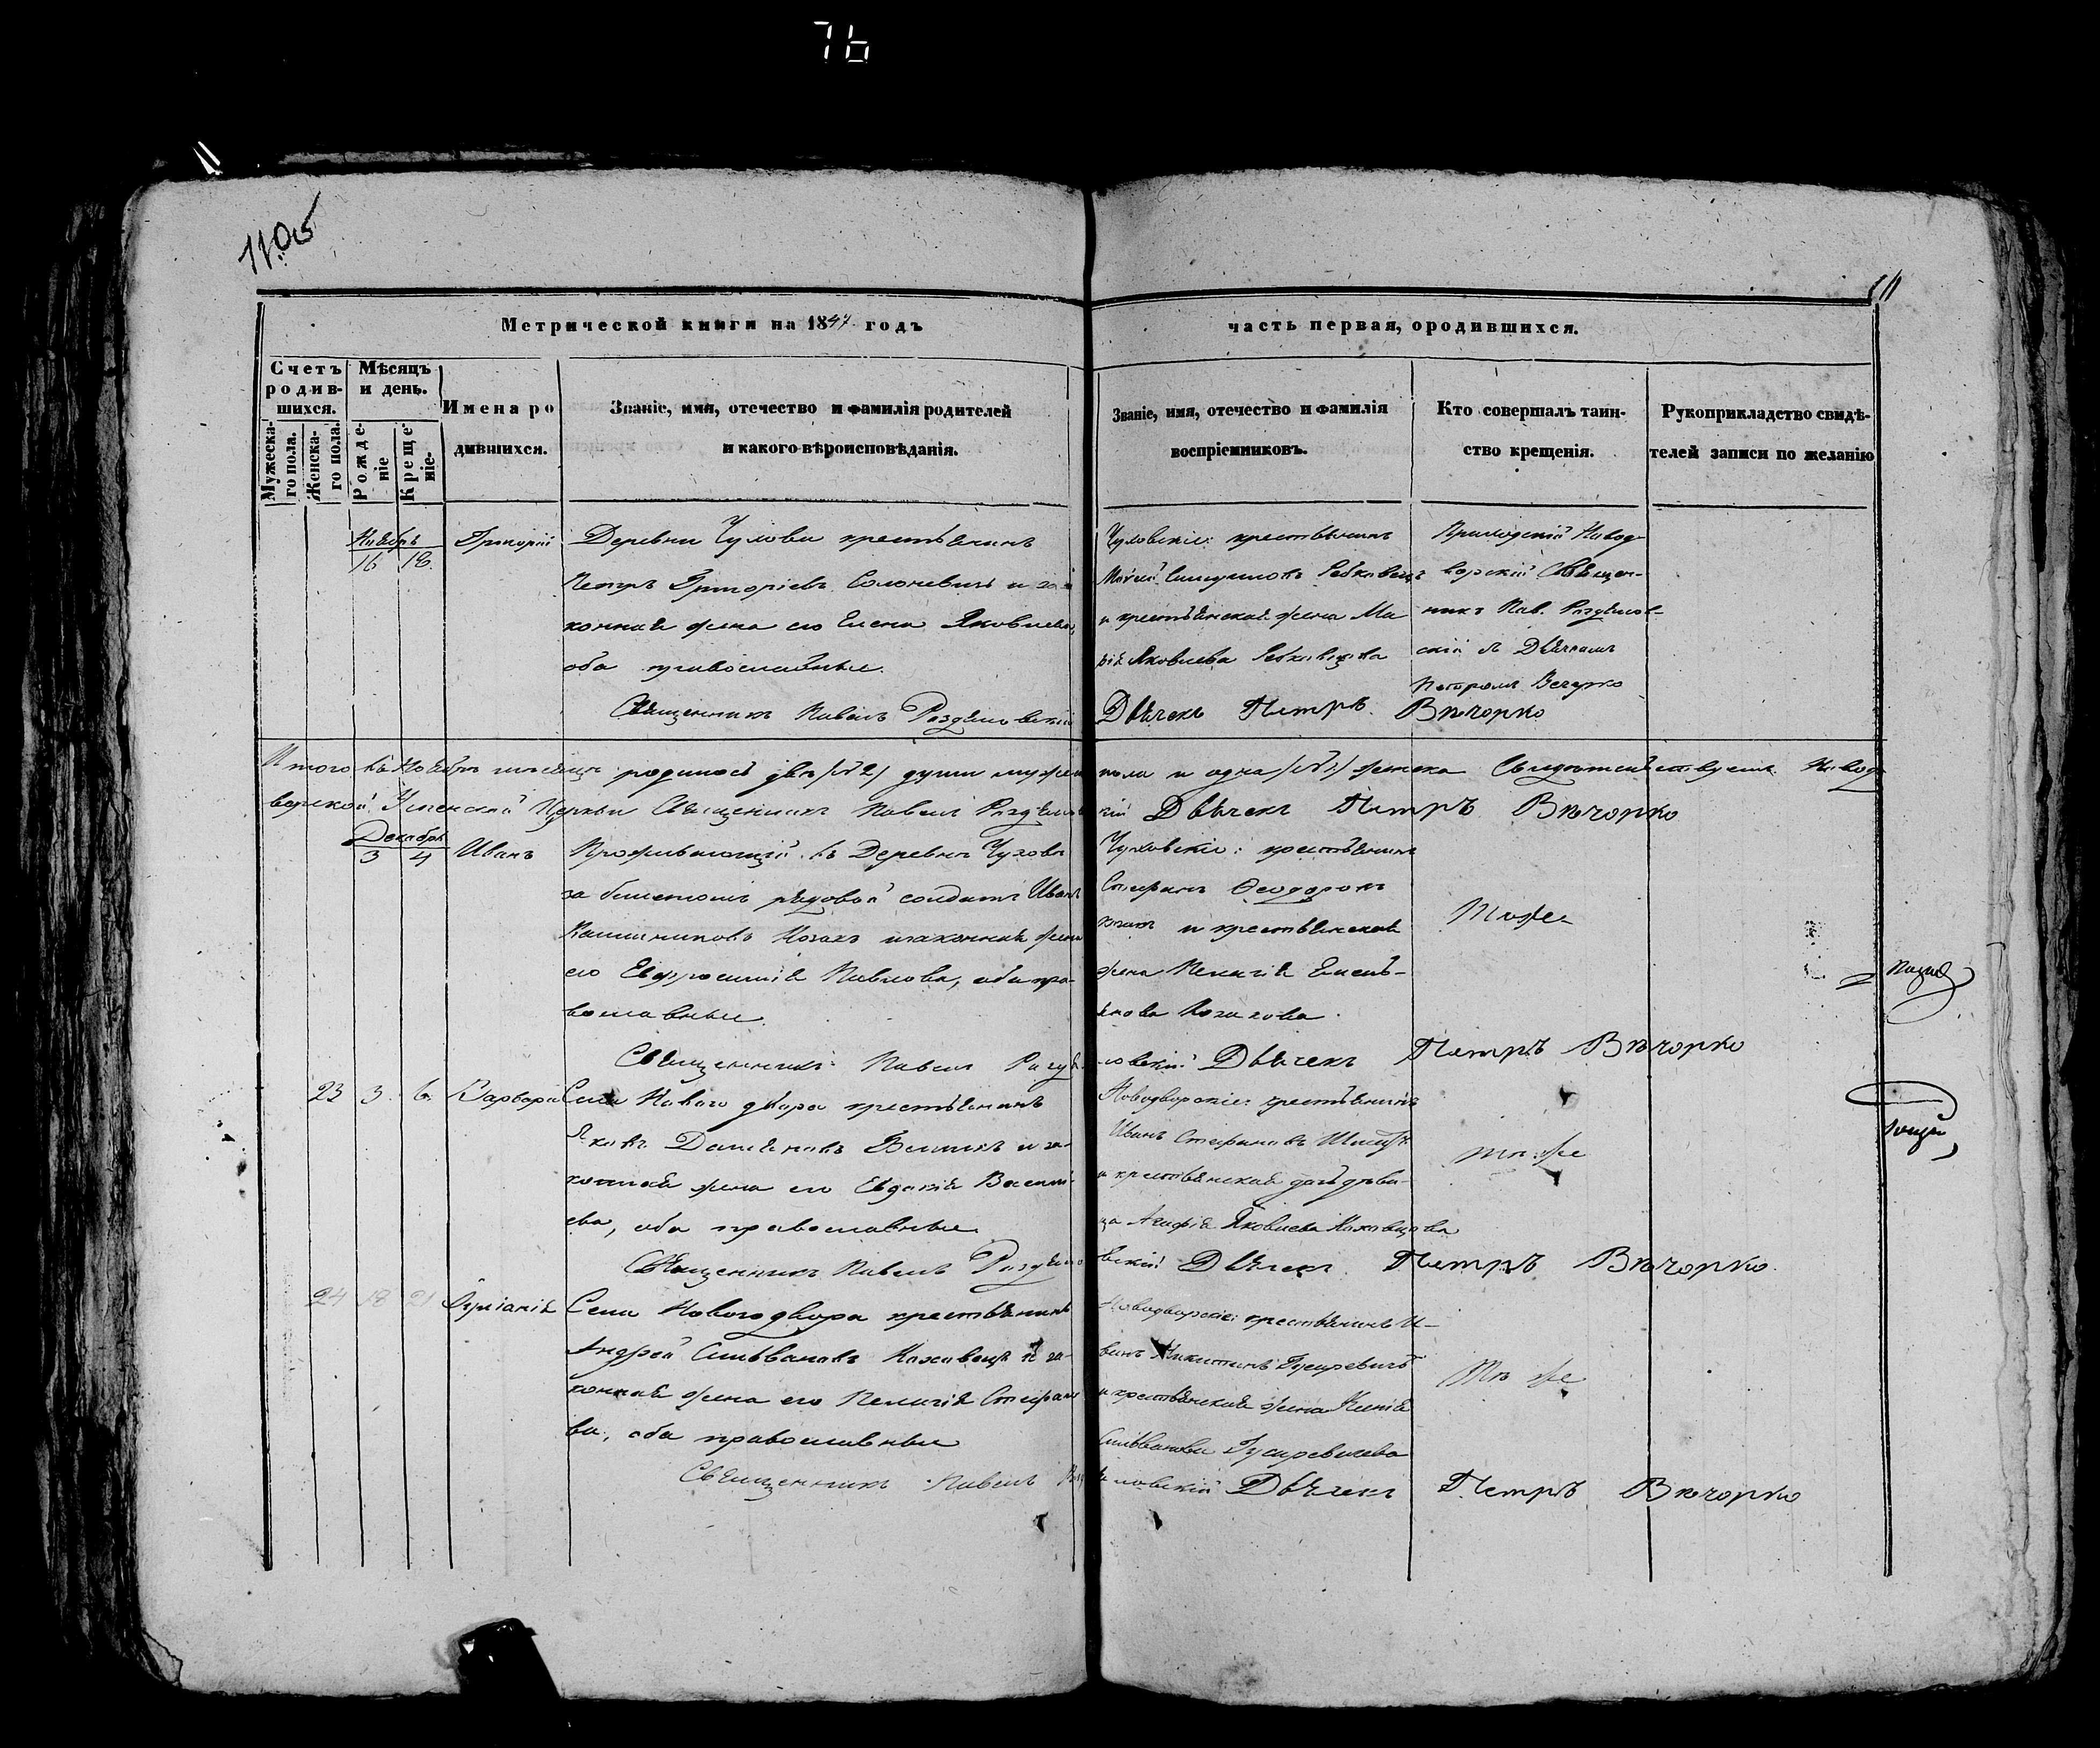 76
1105
11
Метрической книги на 1847 годъ
часть первая, ородившихся.
Счетъ родив-шихся.
Мужеска-го пола.
Женска-го пола.
Мѣсяцъ и день.
Рожде-ніе
Креще-ніе.
Имена ро
дившихся.
Званіе, имя, отечество и фамилія родителей
и какого вѣроисповѣданія.
Званіе, имя, отечество и фамилія
воспріемниковъ.
Кто совершалъ таин-
ство крещенія.
Рукоприкладство свидѣ-
телей записи по желанію
Ноябрь
16 18.
Григорій
Деревни Чухова крестьянинъ
Петръ Григоріевъ и за
конная жена его Елена Яковлева,
оба православные.
Священникъ Павелъ
Чуховскіе: крестьянинъ
и крестьянская жена Ма
рія Яковлева
Приходскій Новод
ворскій Священ-
никъ Пав.
скій съ Дьячкомъ
Петромъ Вечорко
Дьячекъ Петръ Вечорко
Итого въ Ноябрѣ мѣсяцѣ родилось два /№2/ души мужеск
пола и одна /№1/ женска Свидѣтельствуемъ Новод
ворской Успенской Церкви Священникъ Павелъ
кій Дьячекъ Петръ Вечорко
Декабрь
3 4
Иванъ
Проживающій въ Деревнѣ Чухове
за билетомъ рядовой солдатъ Иванъ
Козакъ и законная жена
его Евфросинія Павлова, оба пра-
вославные.
Священникъ Павелъ
Чуховскіе: крестьянинъ
Стефанъ Феодоровъ
и крестьянская
жена Пелагія Емель-
янова
То же
ловскій Дьячекъ Петръ Вечорко
23 3 6.
Варвара
Села Нового двора крестьянинъ
Яковъ и за-
конная жена его Евдокія Василь-
ева, оба православные
Священникъ Павелъ
Новодворскіе: крестьянинъ
Иванъ Стефановъ
и крестьянская дочь дѣви-
ца Агафія Яковлева
То же
вскій Дьячекъ Петръ Вечорко.
24 18 21
Іуліанія
Села Новогодвора крестьянинъ
Андрей Сильвановъ и за-
конная жена его Пелагія Стефано
ва, оба православные
Священникъ Павелъ
Новодворскіе: крестьянинъ И-
ванъ Никитинъ Гусаревичъ
и крестьянская жена Ксенія
Сильванова Гусаревичева
То же
ловскій Дьячекъ Петръ Вечорко